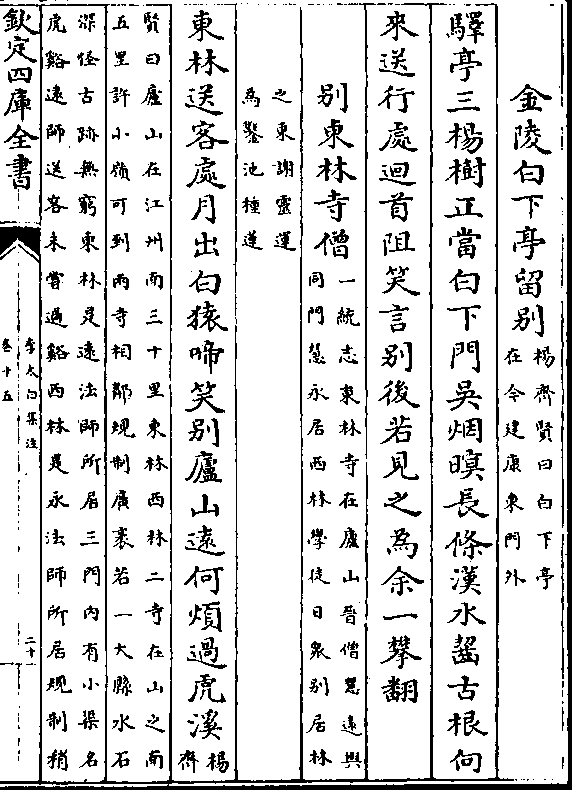 金陵白下亭留别楊齊賢曰白下亭
在今建康東門外
驛亭三楊樹正當白下門吳烟暝長條漢水齧古根向
來送行處迴首阻笑言别後若見之為余一攀翻
别東林寺僧一統志東林寺在廬山晉僧慧逺與
同門慧永居西林學徒日衆别居林
之東謝靈運
為鑿池種蓮
東林送客處月出白猿啼笑别廬山逺何煩過虎溪楊
齊
賢曰廬山在江州南三十里東林西林二寺在山之南
五里許小嶺可到兩寺相鄰規制廣袤若一大縣水石
深怪古跡無窮東林是逺法師所居三門内有小渠名
虎谿逺師送客未嘗過谿西林是永法師所居規制稍
欽定四庫全書
李太白集注
卷十五
二十